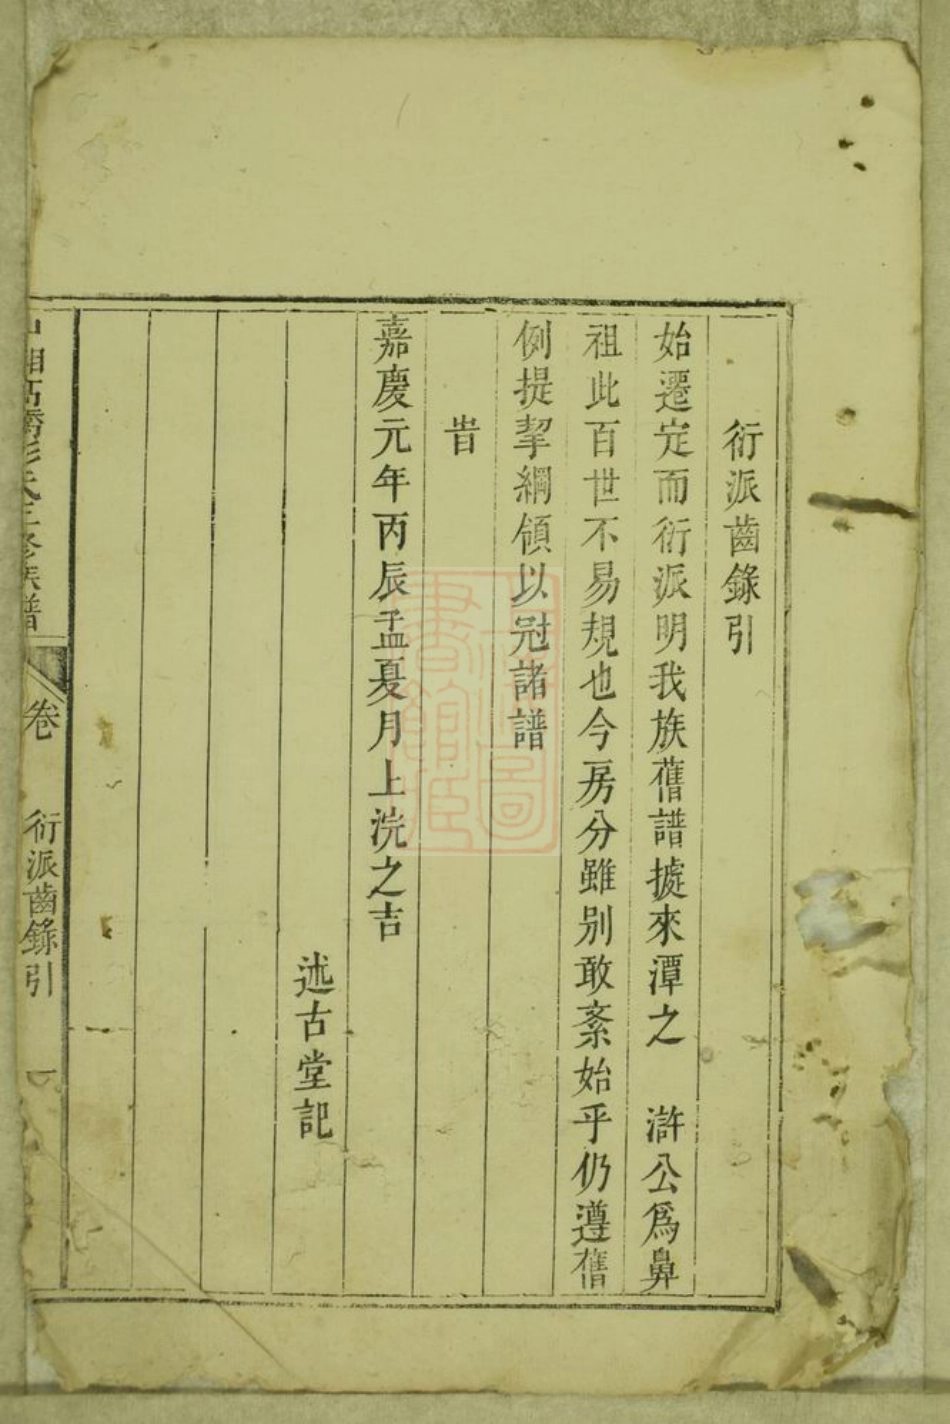 衍派齒錄引
始遷定而衍派明我族舊譜據來潭之 滸公爲鼻
祖此百世不易規也今房分雖別敢紊始乎仍遵舊
例提挈綱領以冠諸譜
旹
嘉慶元年丙辰孟夏月上浣之吉
述古堂記
氏三修族譜
卷
衍派齒錄引
一